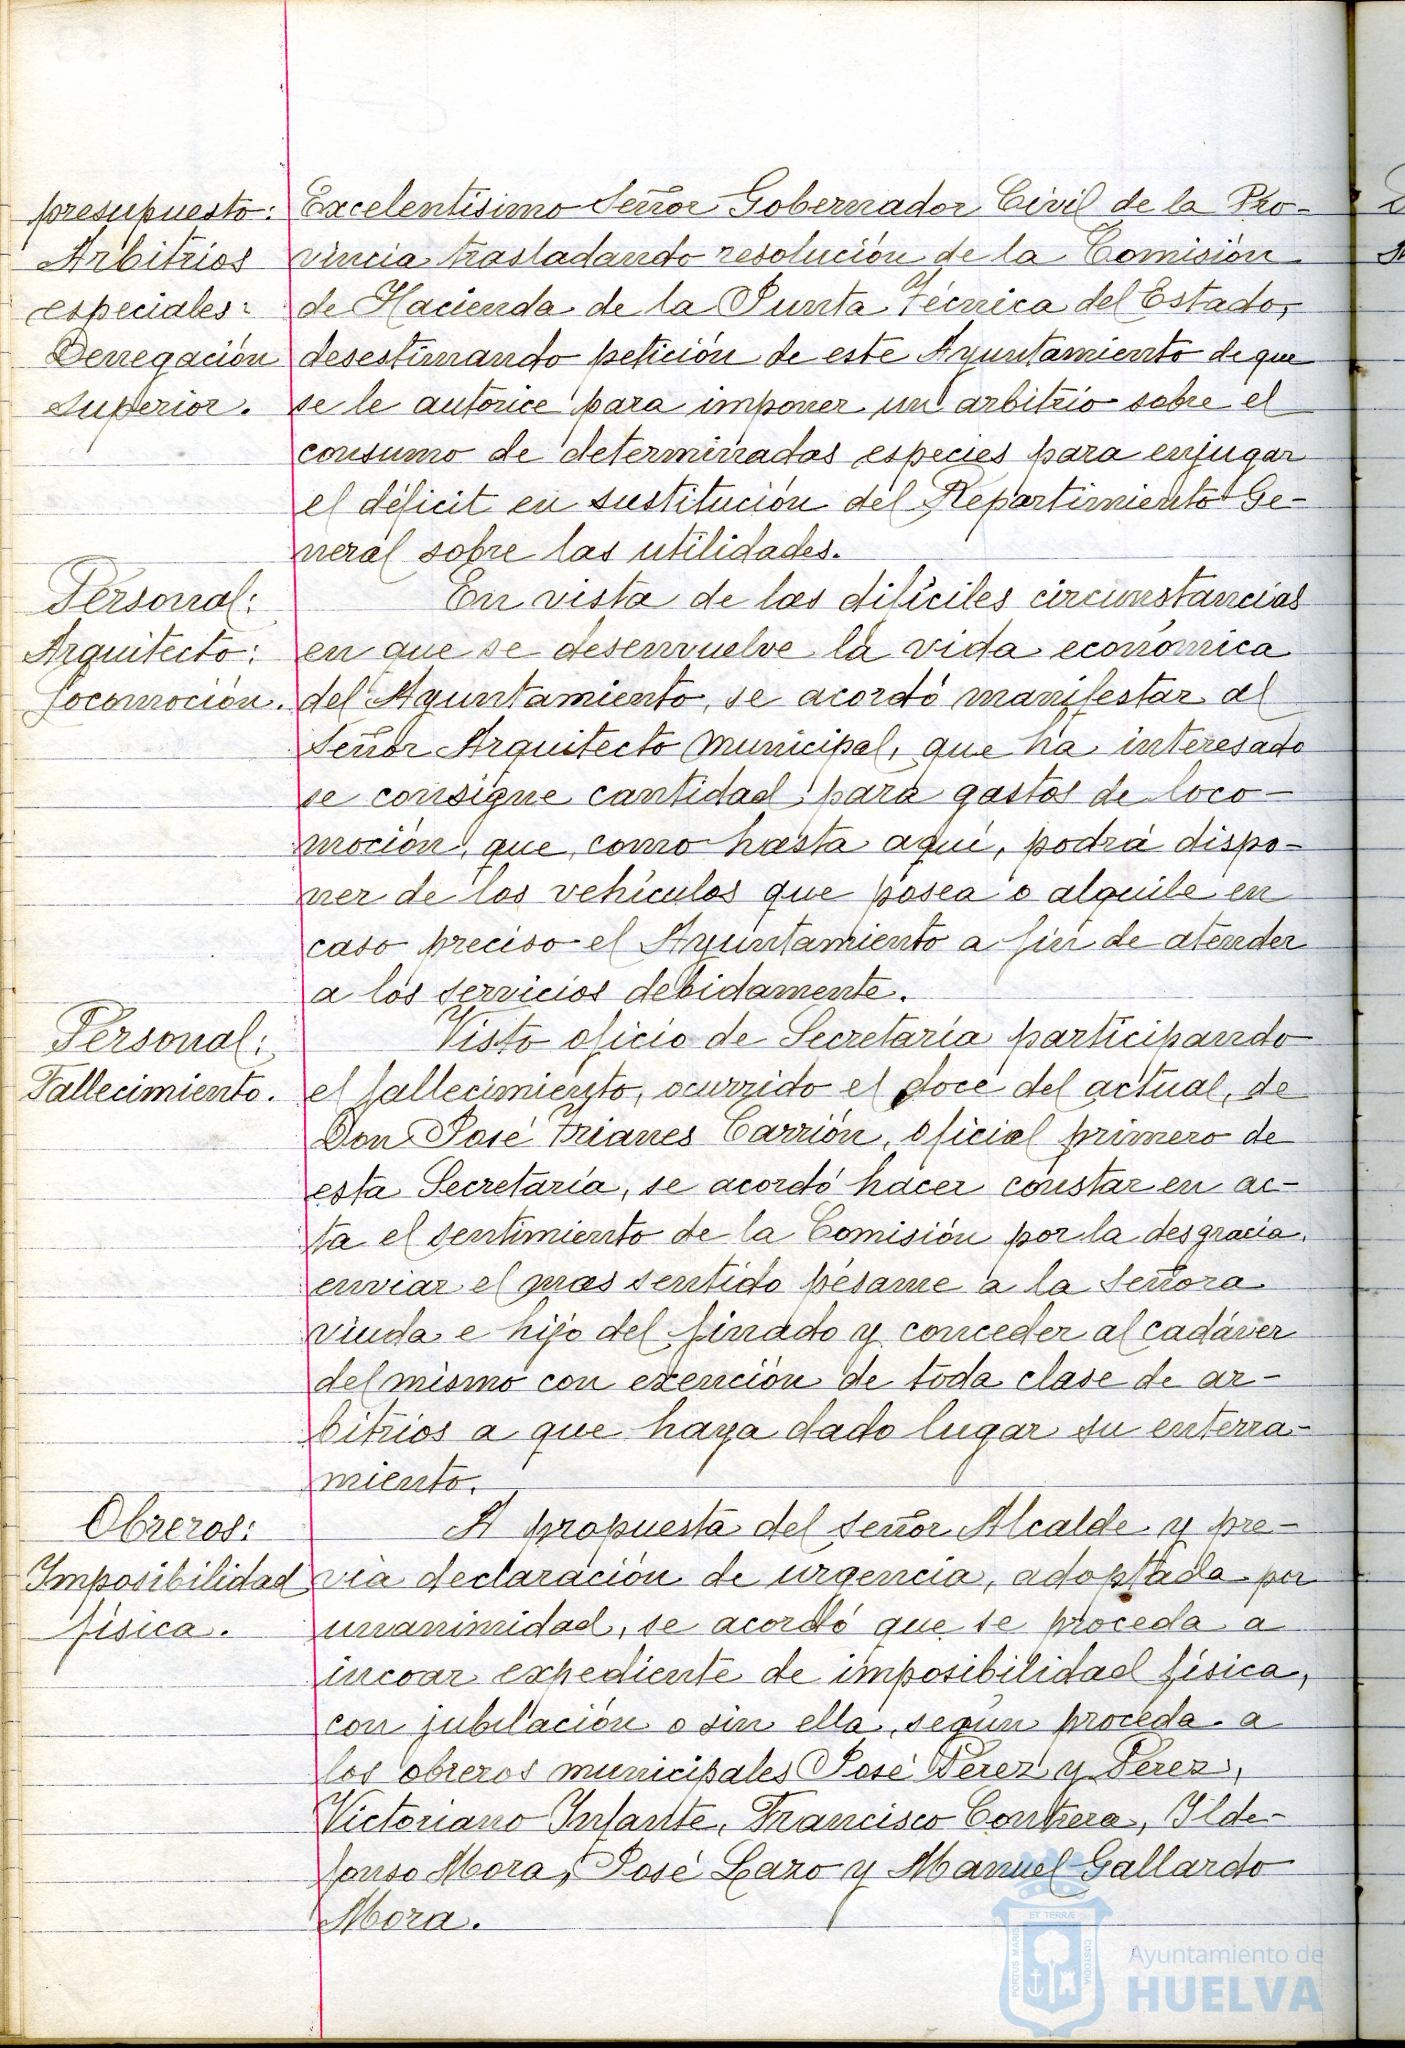 presupuesto:
Arbitrios
especiales:
Denegación
superior.
Excelentísimo Señor Gobernador Civil de la Pro-
vincia trasladando resolución de la Comisión
de Hacienda de la Junta Técnica del Estado,
desestimando petición de este Ayuntamiento de que
se le autorice para imponer un arbitrio sobre el
consumo de determinadas especies para enjugar
el déficit en sustitución del Repartimiento Ge-
neral sobre las utilidades.
Personal:
Arquitecto:
Locomoción.
En vista de las difíciles circunstancias
en que se desenvuelve la vida económica
del Ayuntamiento, se acordó manifestar al
Señor Arquitecto municipal, que ha interesado
se consigne cantidad para gastos de loco-
moción, que, como hasta aquí, podrá dispo-
ner de los vehículos que posea o alquile en
caso preciso el Ayuntamiento a fin de atender
a los servicios debidamente.
Personal:
Fallecimiento.
Visto oficio de Secretaría participando
el fallecimiento, ocurrido el doce del actual, de
Don José Trianes Carrión, oficial primero de
esta Secretaría, se acordó hacer constar en ac-
ta el sentimiento de la Comisión por la desgracia,
enviar el mas sentido pésame a la Señora
viuda e hijo del finado y conceder al cadáver
del mismo con exención de toda clase de ar-
bitrios a que haya dado lugar su enterra-
miento.
Obreros:
Imposibilidad
física.
A propuesta del señor Alcalde y pre-
via declaración de urgencia, adoptada por
unanimidad, se acordó que se proceda a
incoar expediente de imposibilidad física,
con jubilación o sin ella, según proceda a
los obreros municipales José Pérez y Pérez,
Victoriano Infante, Francisco Contrera, Ilde-
fonso Mora, José Lazo y Manuel Gallardo
Mora.
PORTUS MARIS
ET TERRÆ
CUSTODIA
Ayuntamiento de
HUELVA